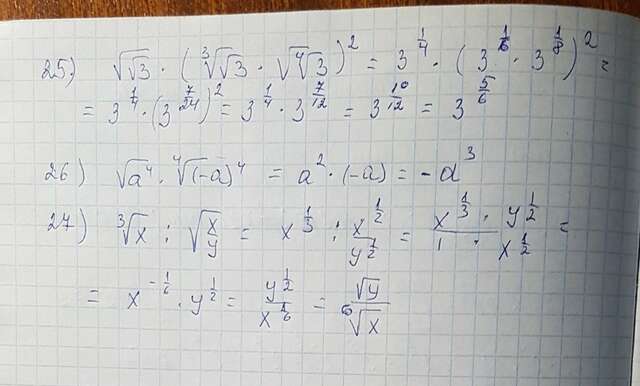 25) √√3 · (∛√3 · √∜3)² = 3^(1/4) · (3^(1/6) · 3^(1/8))² =
= 3^(1/4) · (3^(7/24))² = 3^(1/4) · 3^(7/12) = 3^(10/12) = 3^(5/6)
26) √a⁴ · ∜(-a)⁴ = a² · (-a) = -a³
27) ∛x : √(x/y) = x^(1/3) : x^(1/2)/y^(1/2) = (x^(1/3) · y^(1/2))/(1 · x^(1/2)) =
= x^(-1/6) · y^(1/2) = y^(1/2)/x^(1/6) = √y/⁶√x